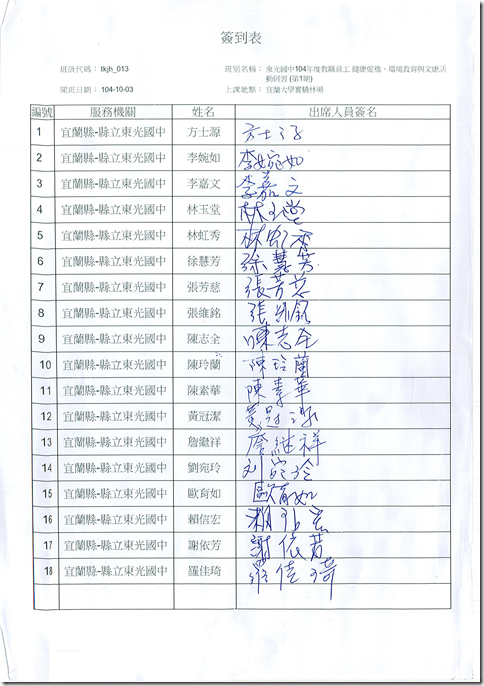 簽到表
班級代碼： tkjh_013 班別名稱： 東光國中104年度教職員工 健康促進、環境教育與文康活動研習 (第1期)
開班日期： 104-10-03 上課地點： 宜蘭大學實驗林場
編號 服務機關 姓名 出席人員簽名
1 宜蘭縣-縣立東光國中 方士源 方士源
2 宜蘭縣-縣立東光國中 李婉如 李婉如
3 宜蘭縣-縣立東光國中 李嘉文 李嘉文
4 宜蘭縣-縣立東光國中 林玉堂 林玉堂
5 宜蘭縣-縣立東光國中 林虹秀 林虹秀
6 宜蘭縣-縣立東光國中 徐慧芳 徐慧芳
7 宜蘭縣-縣立東光國中 張芳慈 張芳慈
8 宜蘭縣-縣立東光國中 張維銘 張維銘
9 宜蘭縣-縣立東光國中 陳志全 陳志全
10 宜蘭縣-縣立東光國中 陳玲蘭 陳玲蘭
11 宜蘭縣-縣立東光國中 陳素華 陳素華
12 宜蘭縣-縣立東光國中 黃冠潔 黃冠潔
13 宜蘭縣-縣立東光國中 詹繼祥 詹継祥
14 宜蘭縣-縣立東光國中 劉宛玲 刘宛玲
15 宜蘭縣-縣立東光國中 歐育如 歐育如
16 宜蘭縣-縣立東光國中 賴信宏 賴信宏
17 宜蘭縣-縣立東光國中 謝依芳 謝依芳
18 宜蘭縣-縣立東光國中 羅佳琦 羅佳琦